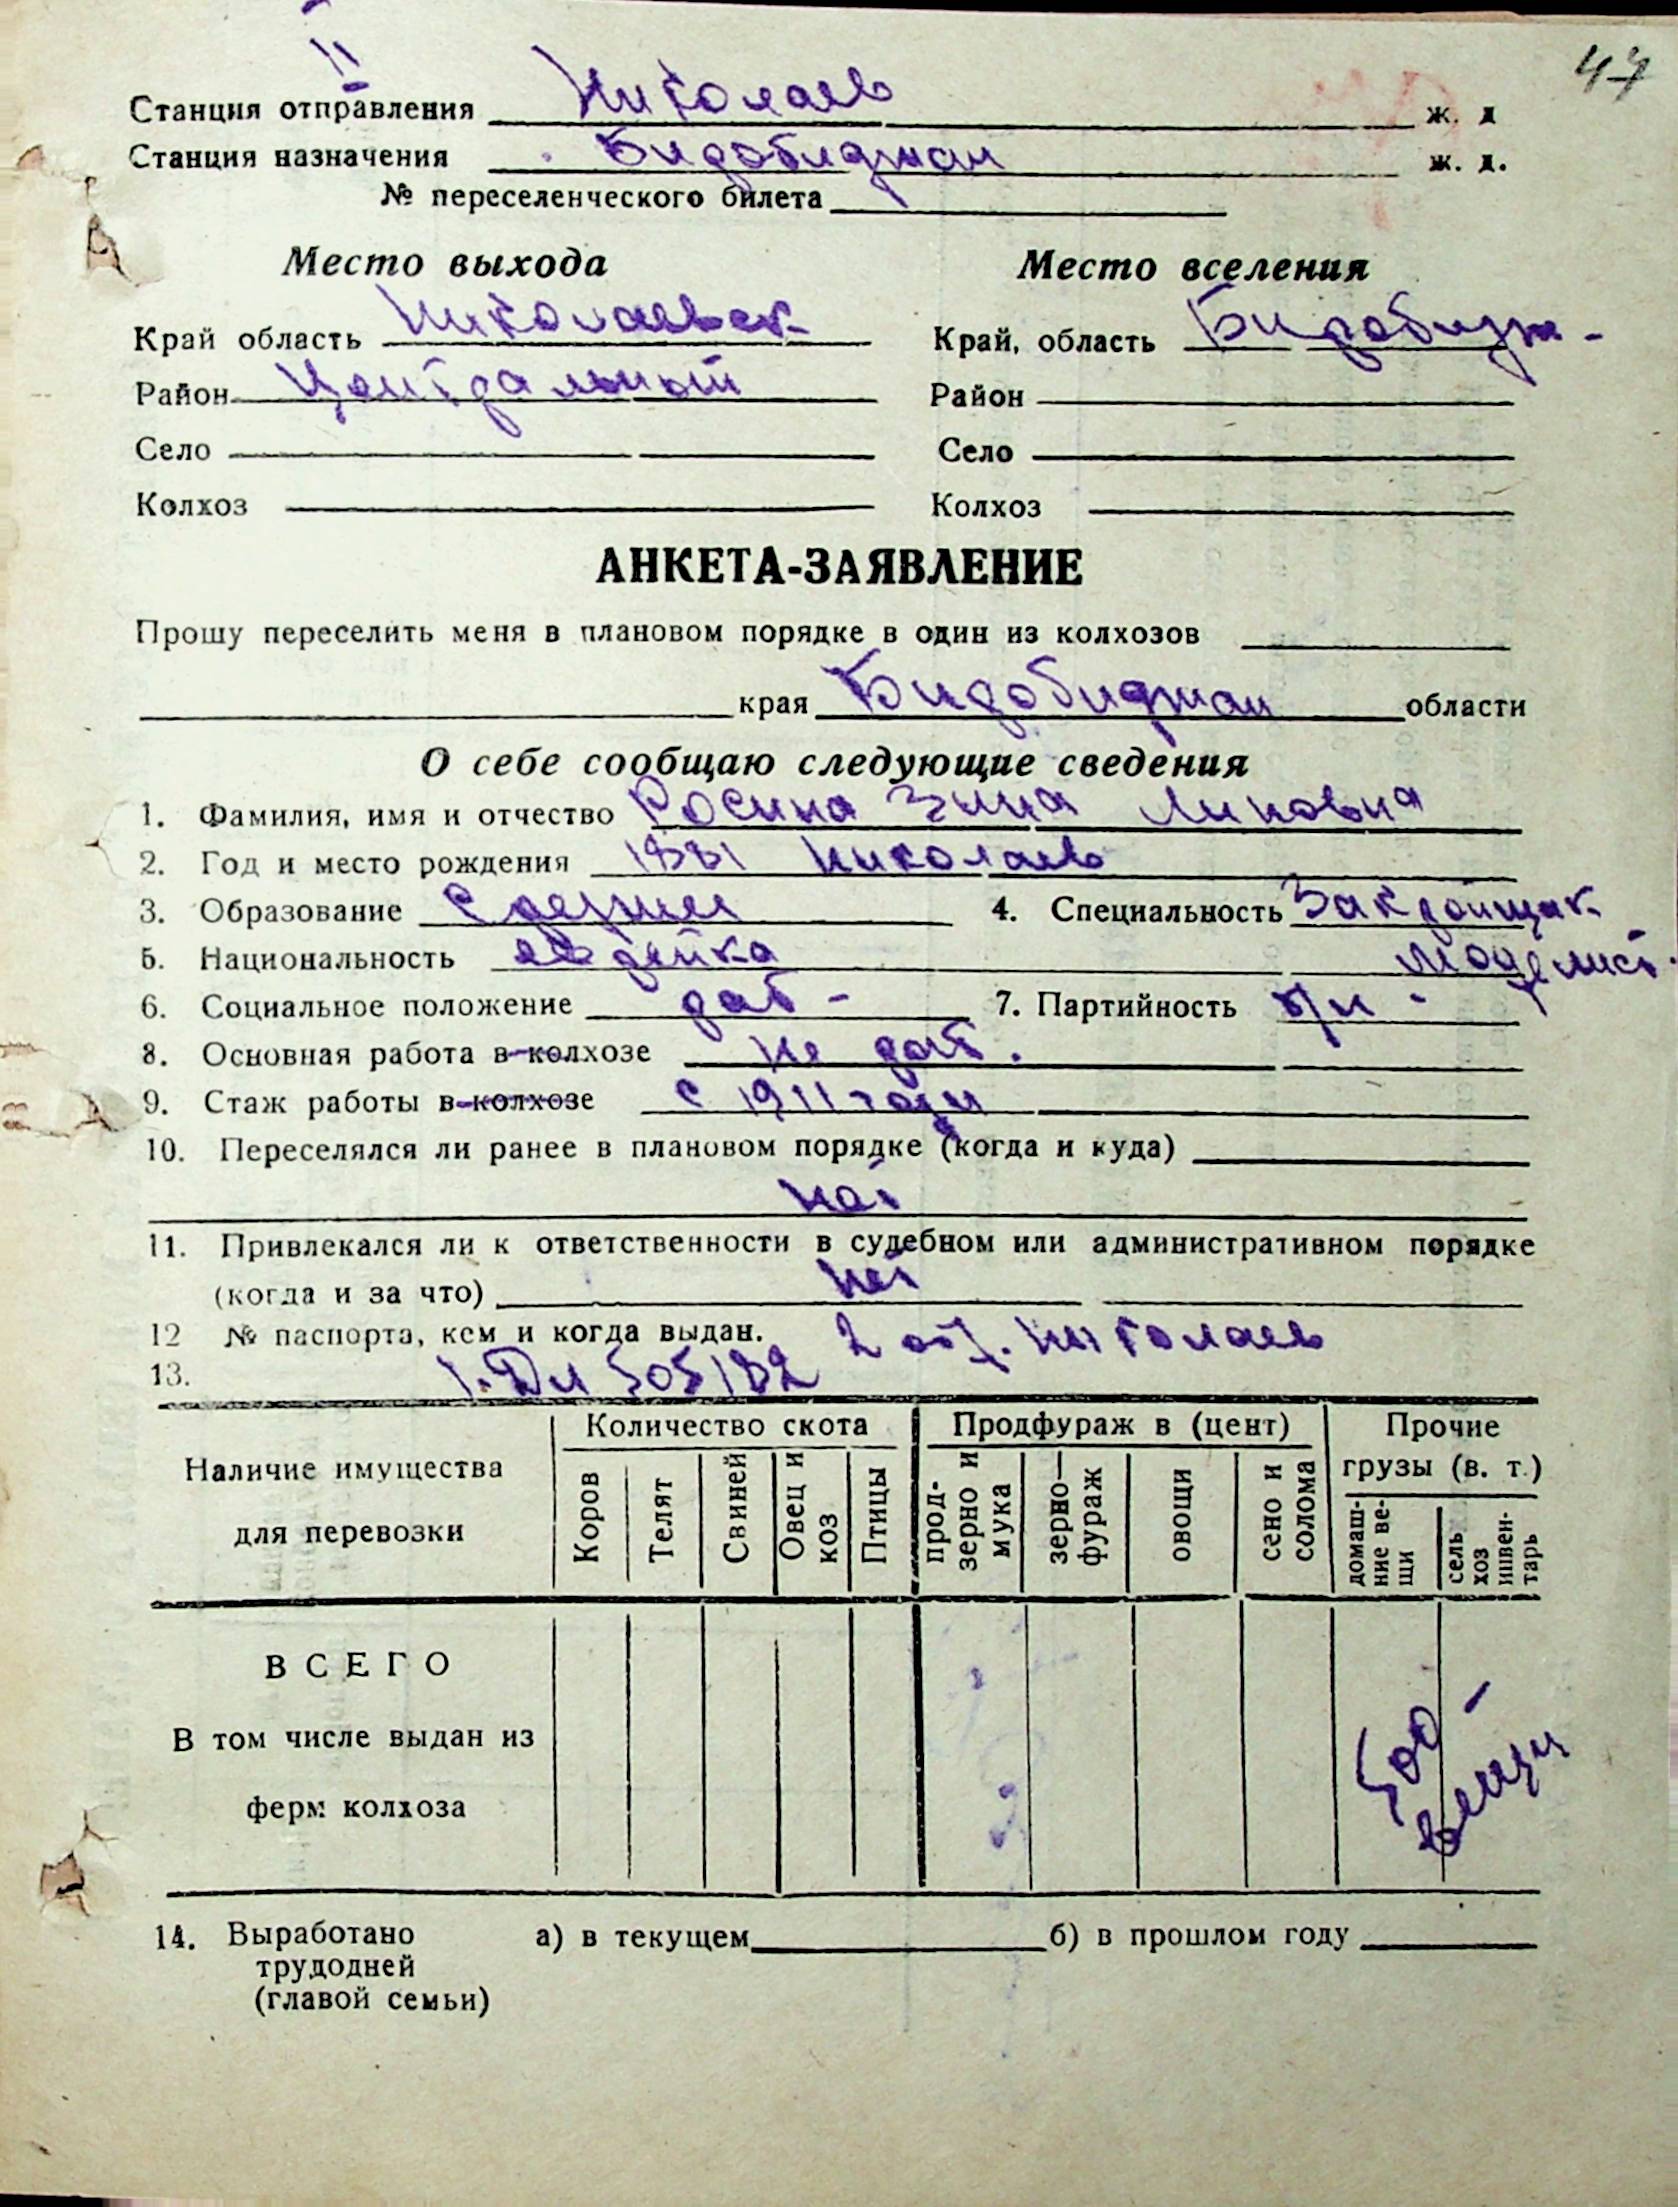 47
II
Станция отправления Николаев ж. д
Станция назначения Биробиджан ж. д.
№ переселенческого билета
Место выхода Место вселения
Край область Николаевск. Край, область Биробидж-
Район Центральный Район
Село Село
Колхоз Колхоз
АНКЕТА-ЗАЯВЛЕНИЕ
Прошу переселить меня в плановом порядке в один из колхозов
края Биробиджан области
О себе сообщаю следующие сведения
1. Фамилия, имя и отчество Росина Зина Липовна
2. Год и место рождения 1881 Николаев
3. Образование Среднее 4. Специальность Закройщик
5. Национальность еврейка моделист.
6. Социальное положение раб- 7. Партийность б/п-
8. Основная работа в колхозе не раб.
9. Стаж работы в колхозе с 1911 года
10. Переселялся ли ранее в плановом порядке (когда и куда)
нет
11. Привлекался ли к ответственности в судебном или административном порядке
(когда и за что) нет
12 № паспорта, кем и когда выдан. 2 Николаев
13. 505182
Наличие имущества для перевозки
Количество скота Продфураж в (цент) Прочие грузы (в. т.)
Коров Телят Свиней Овец и коз Птицы прод-зерно и мука зерно—фураж овощи сено и солома домаш-ние ве-щи сель хоз инвен-тарь
ВСЕГО
В том числе выдан из
ферм колхоза
500 -
вещи
14. Выработано а) в текущем б) в прошлом году
трудодней
(главой семьи)